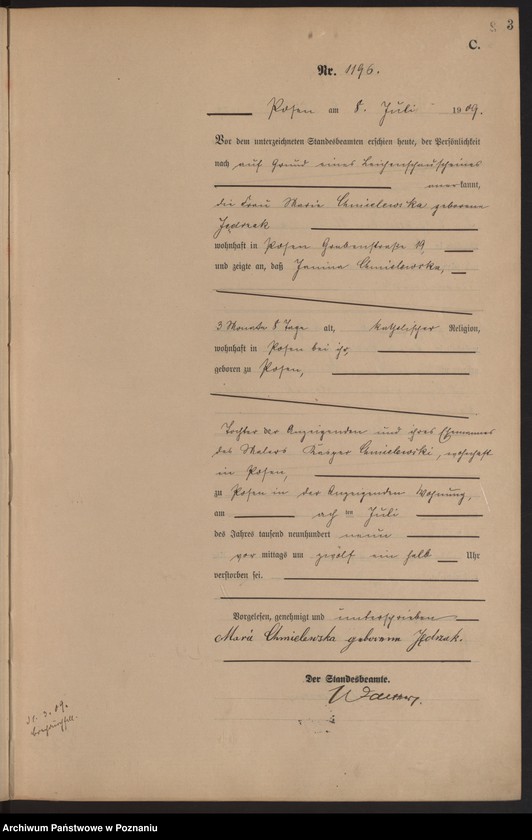 3
C.
Nr. 1196.
Posen am 8. Juli 1909.
Vor dem unterzeichneten Standesbeamten erschien heute, der Persönlichkeit
nach auf Grund eines Leichenschauscheines
anerkannt,
die Frau Marie Chmielewska geborene
Jędrzak
wohnhaft in Posen Grabenstraße 19
und zeigte an, daß Janina Chmielewska,
3 Monate 8 Tage alt, katholischer Religion,
wohnhaft in Posen bei ihr,
geboren zu Posen,
Tochter der Anzeigenden und ihres Ehemannes
des Malers Kasper Chmielewski, wohnhaft
in Posen,
zu Posen in der Anzeigenden Wohnung,
am acht en Juli
des Jahres tausend neunhundert neun
vor mittags um zwölf ein halb Uhr
verstorben sei.
Vorgelesen, genehmigt und unterschrieben
Maria Chmielewska geborene Jędrzak.
Der Standesbeamte.
Archiwum Państwowe w Poznaniu